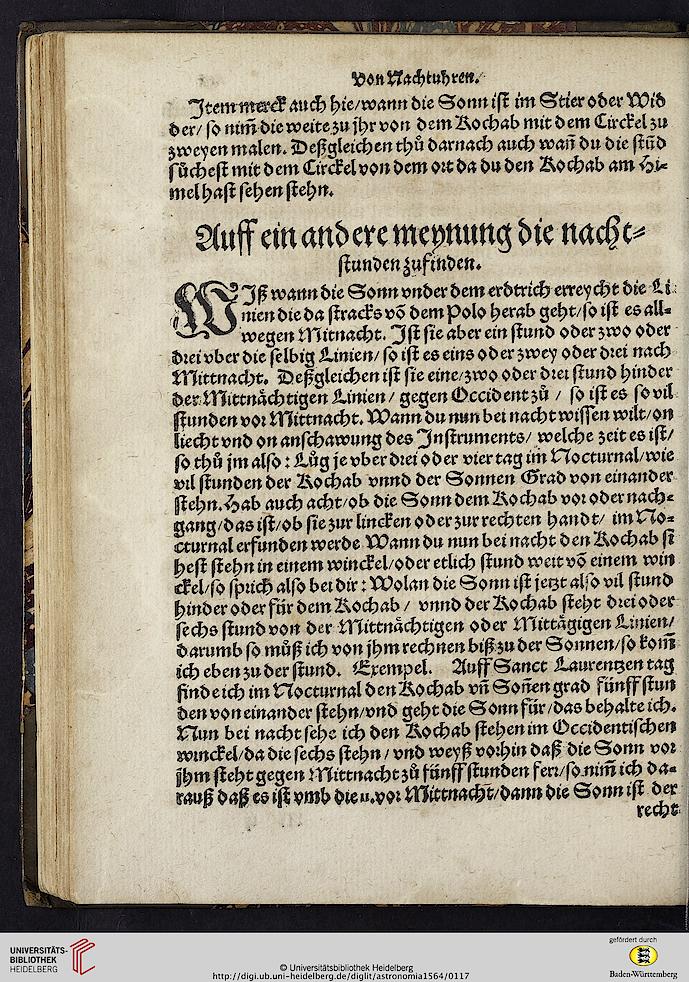 Von Nachtuhren.
Item merck auch hie/wann die Sonn ist im Stier oder Wid
der/ so nim̄ die weite zu jhr von dem Kochab mit dem Circkel zu
zweyen malen. Deßgleichen thů darnach auch wan̄ du die stūd
sůchest mit dem Circkel von dem ort da du den Kochab am Hi=
mel hast sehen stehn.
Auff ein andere meynung die nacht=
stunden zufinden.
WIß wann die Sonn vnder dem erdtrich erreycht die Li
nien die da stracks vō dem Polo herab geht/so ist es all=
wegen Mitnacht. Ist sie aber ein stund oder zwo oder
drei vber die selbig Linien/ so ist es eins oder zwey oder drei nach
Mittnacht. Deßgleichen ist sie eine/zwo oder drei stund hinder
der Mittnächtigen Linien/ gegen Occident zů / so ist es so vil
stunden vor Mittnacht. Wann du nun bei nacht wissen wilt/on
liecht vnd on anschawung des Instruments/ welche zeit es ist/
so thů jm also : Lůg je vber drei oder vier tag im Nocturnal/wie
vil stunden der Kochab vnnd der Sonnen Grad von einander
stehn. Hab auch acht/ob die Sonn dem Kochab vor oder nach=
gang/das ist/ob sie zur lincken oder zur rechten handt/ im No=
cturnal erfunden werde Wann du nun bei nacht den Kochab si
hest stehn in einem winckel/oder etlich stund weit vō einem win
ckel/so sprich also bei dir : Wolan die Sonn ist jetzt also vil stund
hinder oder für dem Kochab / vnnd der Kochab steht drei oder
sechs stund von der Mittnächtigen oder Mittägigen Linien/
darumb so můß ich von jhm rechnen biß zu der Sonnen/so kom̄
ich eben zu der stund. Exempel. Auff Sanct Laurentzen tag
finde ich im Nocturnal den Kochab vn̄ Son̄en grad fünff stun
den von einander stehn/vnd geht die Sonn für/das behalte ich.
Nun bei nacht sehe ich den Kochab stehen im Occidentischen
winckel/da die sechs stehn / vnd weyß vorhin daß die Sonn vor
jhm steht gegen Mittnacht zů fünff stunden ferr/so nim̄ ich da=
rauß daß es ist vmb die 11. vor Mittnacht/dann die Sonn ist der
recht
UNIVERSITÄTS-
BIBLIOTHEK
HEIDELBERG
© Universitätsbibliothek Heidelberg
http://digi.ub.uni-heidelberg.de/diglit/astronomia1564/0117
gefördert durch
Baden-Württemberg